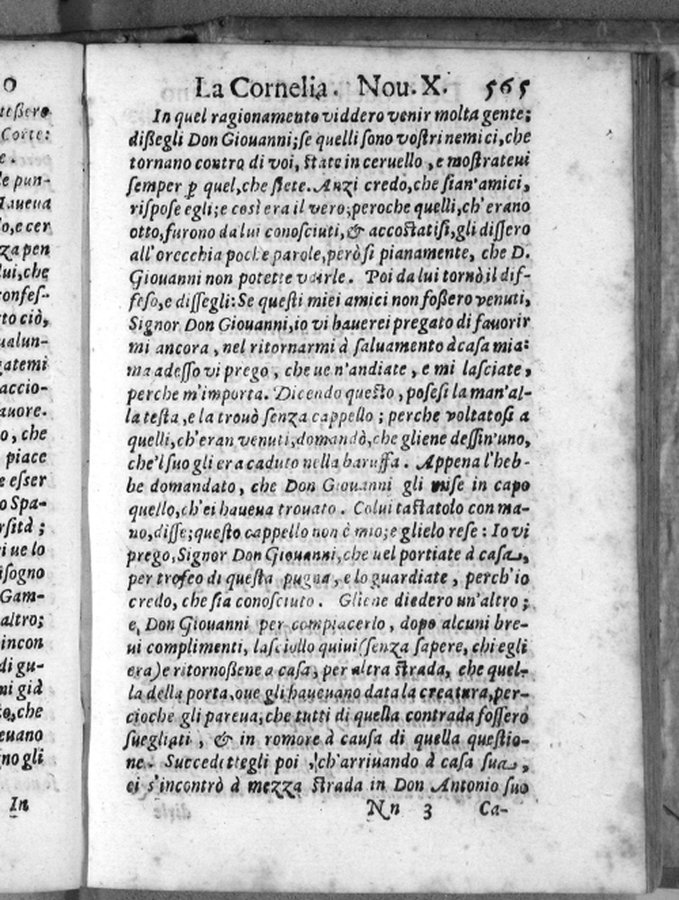 La Cornelia. Nou. X. 565
In quel ragionamento viddero venir molta gente;
dißegli Don Giouanni; se quelli sono vostri nemici, che
tornano contra di voi, state in ceruello, e mostrateui
semper p̱ quel, che siete. Anzi credo, che sian' amici,
rispose egli; e così era il vero; peroche quelli, ch' erano
otto, furono da lui conosciuti, & accostatisi, gli dissero
all' orecchia poche parole, però sì pianamente, che D.
Giouanni non potette vdirle. Poi da lui tornò il dif-
feso, e dissegli: Se questi miei amici non foßero venuti,
Signor Don Giouanni, io vi hauerei pregato di fauorir
mi ancora, nel ritornarmi à saluamento à casa mia:
ma adesso vi prego, che ue n'andiate, e mi lasciate,
perche m'importa. Dicendo questo, posesi la man' al-
la testa, e la trouò senza cappello; perche voltatosi a
quelli, ch' eran venuti, domandò, che gliene dessin' uno,
che'l suo gli era caduto nella baruffa. Appena l'heb-
be domandato, che Don Giouanni gli mise in capo
quello, ch'ei haueua trouato. Colui tastatolo con ma-
no, disse; questo cappello non è mio; e glielo rese: Io vi
prego, Signor Don Giouanni, che uel portiate à casa,
per trofeo di questa pugna, e lo guardiate, perch'io
credo, che sia conosciuto. Gliene diedero un'altro;
e, Don Giouanni per compiacerlo, dopo alcuni bre-
ui complimenti, lasciollo quiui (senza sapere, chi egli
era) e ritornoßene a casa, per altra strada, che quel-
la della porta, oue gli haueuano data la creatura, per-
cioche gli pareua, che tutti di quella contrada foßero
suegliati, & in romore à causa di quella questio-
ne. Succedettegli poi, ch' arriuando à casa sua,
ei s'incontrò à mezza strada in Don Antonio suo
Nn 3 Ca-